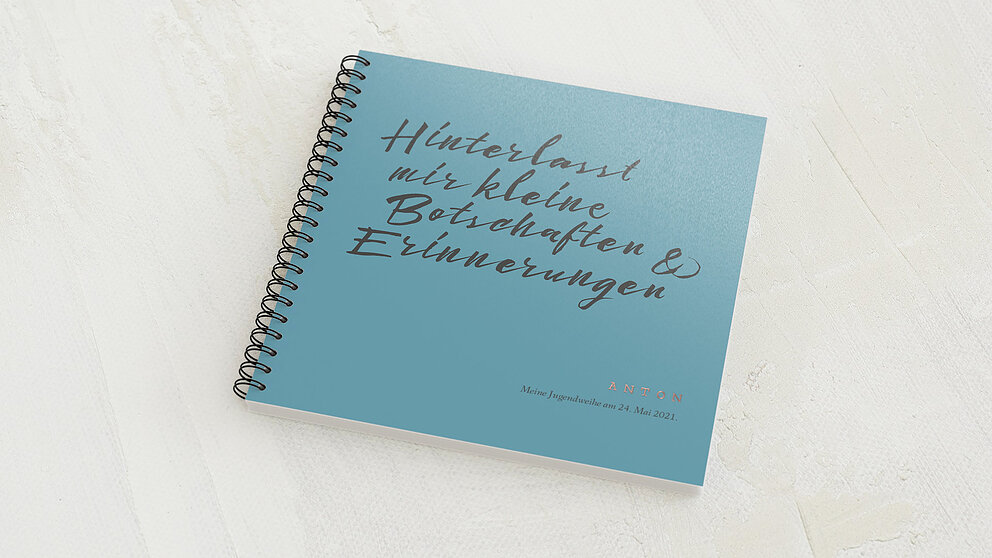 Hinterlasst
mir kleine
Botschaften &
Erinnerungen
ANTON
Meine Jugendweihe am 24. Mai 2021.